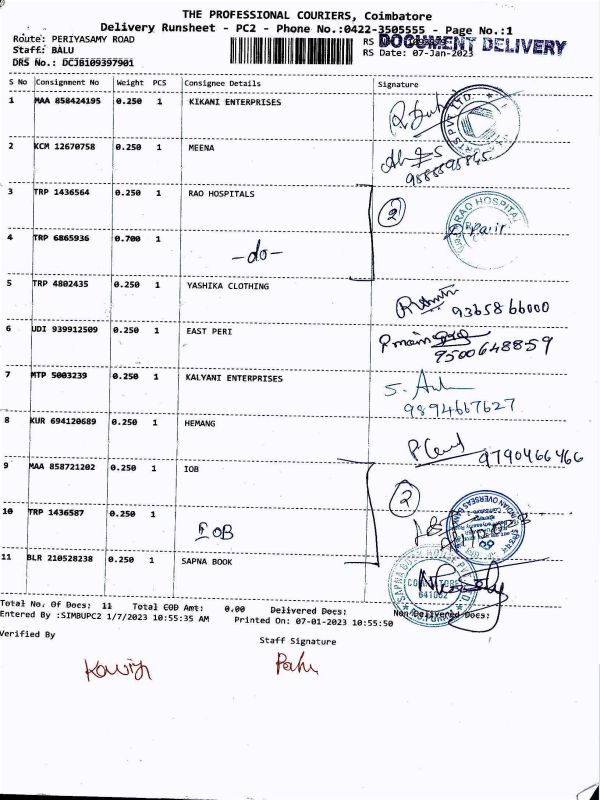 THE PROFESSIONAL COURIERS, Coimbatore
Delivery Runsheet - PC2 - Phone No.:0422-3505555 - Page No.:1
Route: PERIYASAMY ROAD
DOCUMENT DELIVERY
Staff: BALU RS Date: 07-Jan-2023
DRS No.: DCJS109397901
S No Consignment No Weight PCS Consignee Details Signature
1 MAA 858424195 0.250 1 KIKANI ENTERPRISES
2 KCM 12670758 0.250 1 MEENA
3 TRP 1436564 0.250 1 RAO HOSPITALS 2
RAO HOSPITAL
4 TRP 6865936 0.700 1 -do-
5 TRP 4802435 0.250 1 YASHIKA CLOTHING
9365866000
6 UDI 939912509 0.250 1 EAST PERI
9500648859
7 MTP 5003239 0.250 1 KALYANI ENTERPRISES
9894667627
8 KUR 694120689 0.250 1 HEMANG
9790466466
9 MAA 858721202 0.250 1 IOB
2
10 TRP 1436587 0.250 1 IOB
INDIAN OVERSEAS BANK
11 BLR 210528238 0.250 1 SAPNA BOOK
SAPNA BOOK HOUSE
641002
Total No. Of Docs: 11 Total COD Amt: 0.00 Delivered Docs: Non Delivered Docs:
Entered By :SIMBUPC2 1/7/2023 10:55:35 AM Printed On: 07-01-2023 10:55:50
Verified By Staff Signature